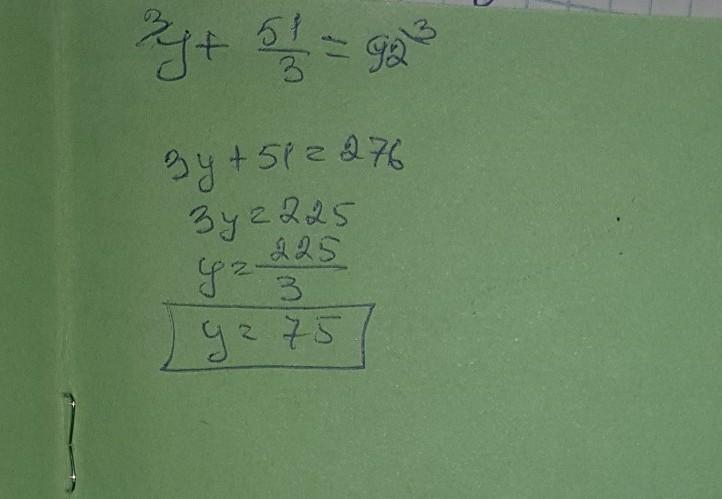 ³y + 51/3 = 92³
3y + 51 = 276
3y = 225
y = 225/3
y = 75